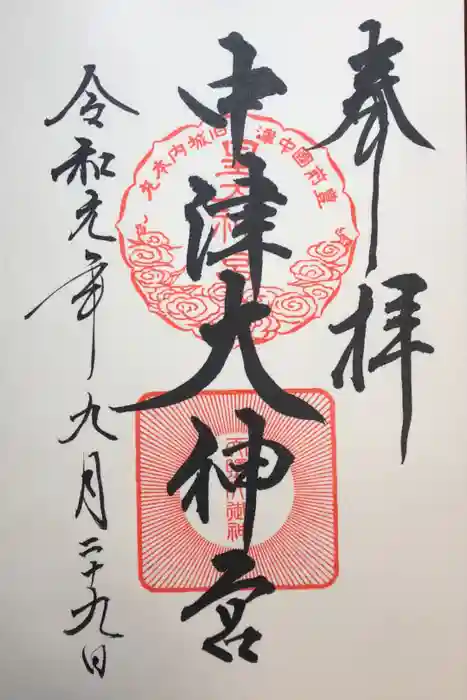 奉拝
中津大神宮
令和元年九月二十九日
豊前國中津 旧城内本丸